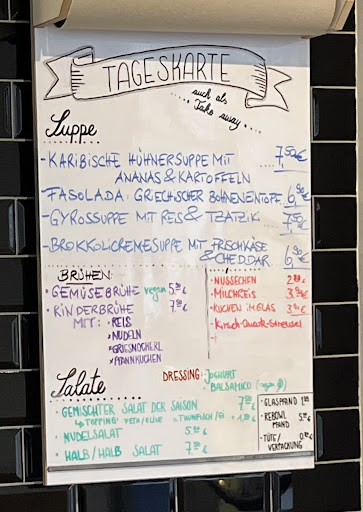 TAGESKARTE
auch als
Take away
Suppe
- KARIBISCHE HÜHNERSUPPE MIT 7,50€
ANANAS & KARTOFFELN
- FASOLADA: GRIECHISCHER BOHNENEINTOPF 6,90€
- GYROSSUPPE MIT REIS & TZATZIKI 7,50€
- BROKKOLICREMESUPPE MIT FRISCHKÄSE
& CHEDDAR 6,90€
BRÜHEN:
- GEMÜSEBRÜHE vegan 5,50€
- RINDERBRÜHE 7,90€
MIT: • REIS
• NUDELN
• GRIESNOCKERL
• PFANNKUCHEN
- NUSSECHEN
- MILCHREIS
- KUCHEN IM GLAS
- Kirsch-Quark-Streusel
Salate
DRESSING: JOGHURT
BALSAMICO (vegan)
- GEMISCHTER SALAT DER SAISON
TOPPING: FETA/OLIVE THUNFISCH/Ei
- NUDELSALAT
- HALB/HALB SALAT
• GLASPFAND
• REBOWL
PFAND
• TÜTE/
VERPACKUNG